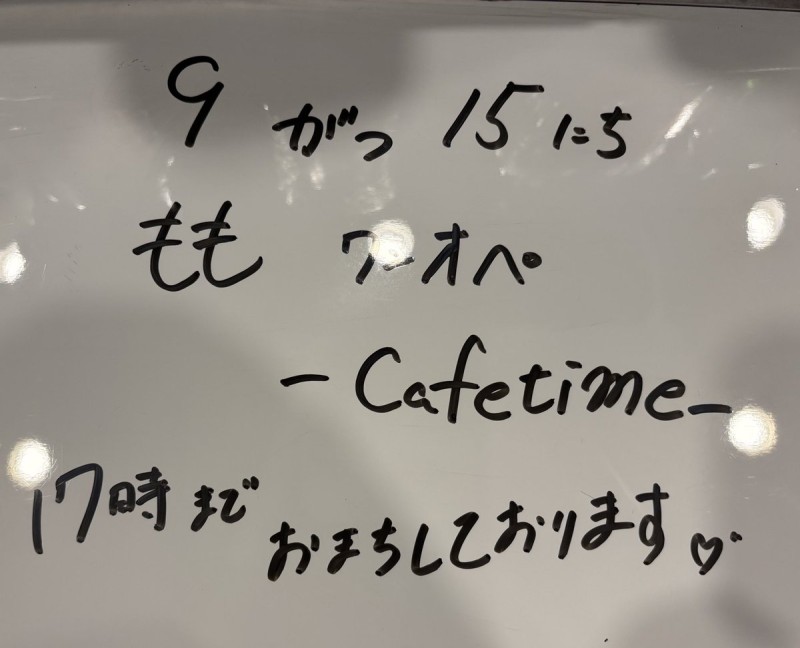 9がつ15にち
もも ワーオペ
-Cafetime-
17時まで
おまちしております♡